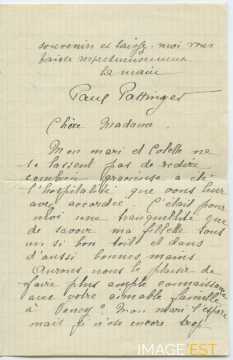 souvenir et laissez-moi vous
baiser respectueusement
la main
Paul Pattinger
Chère Madame,
Mon mari et Colette ne
se lassent pas de redire
combien gracieuse a été
l'hospitalité que vous leur
avez accordée. C'était pour
moi une tranquillité que
de savoir ma fillette sous
un si bon toit et dans
d'aussi bonnes mains
Aurons nous le plaisir de
faire plus ample connaissance
avec votre aimable famille
à Mon mari l'espère
mais je n'ose encore trop
IMAGE'EST.